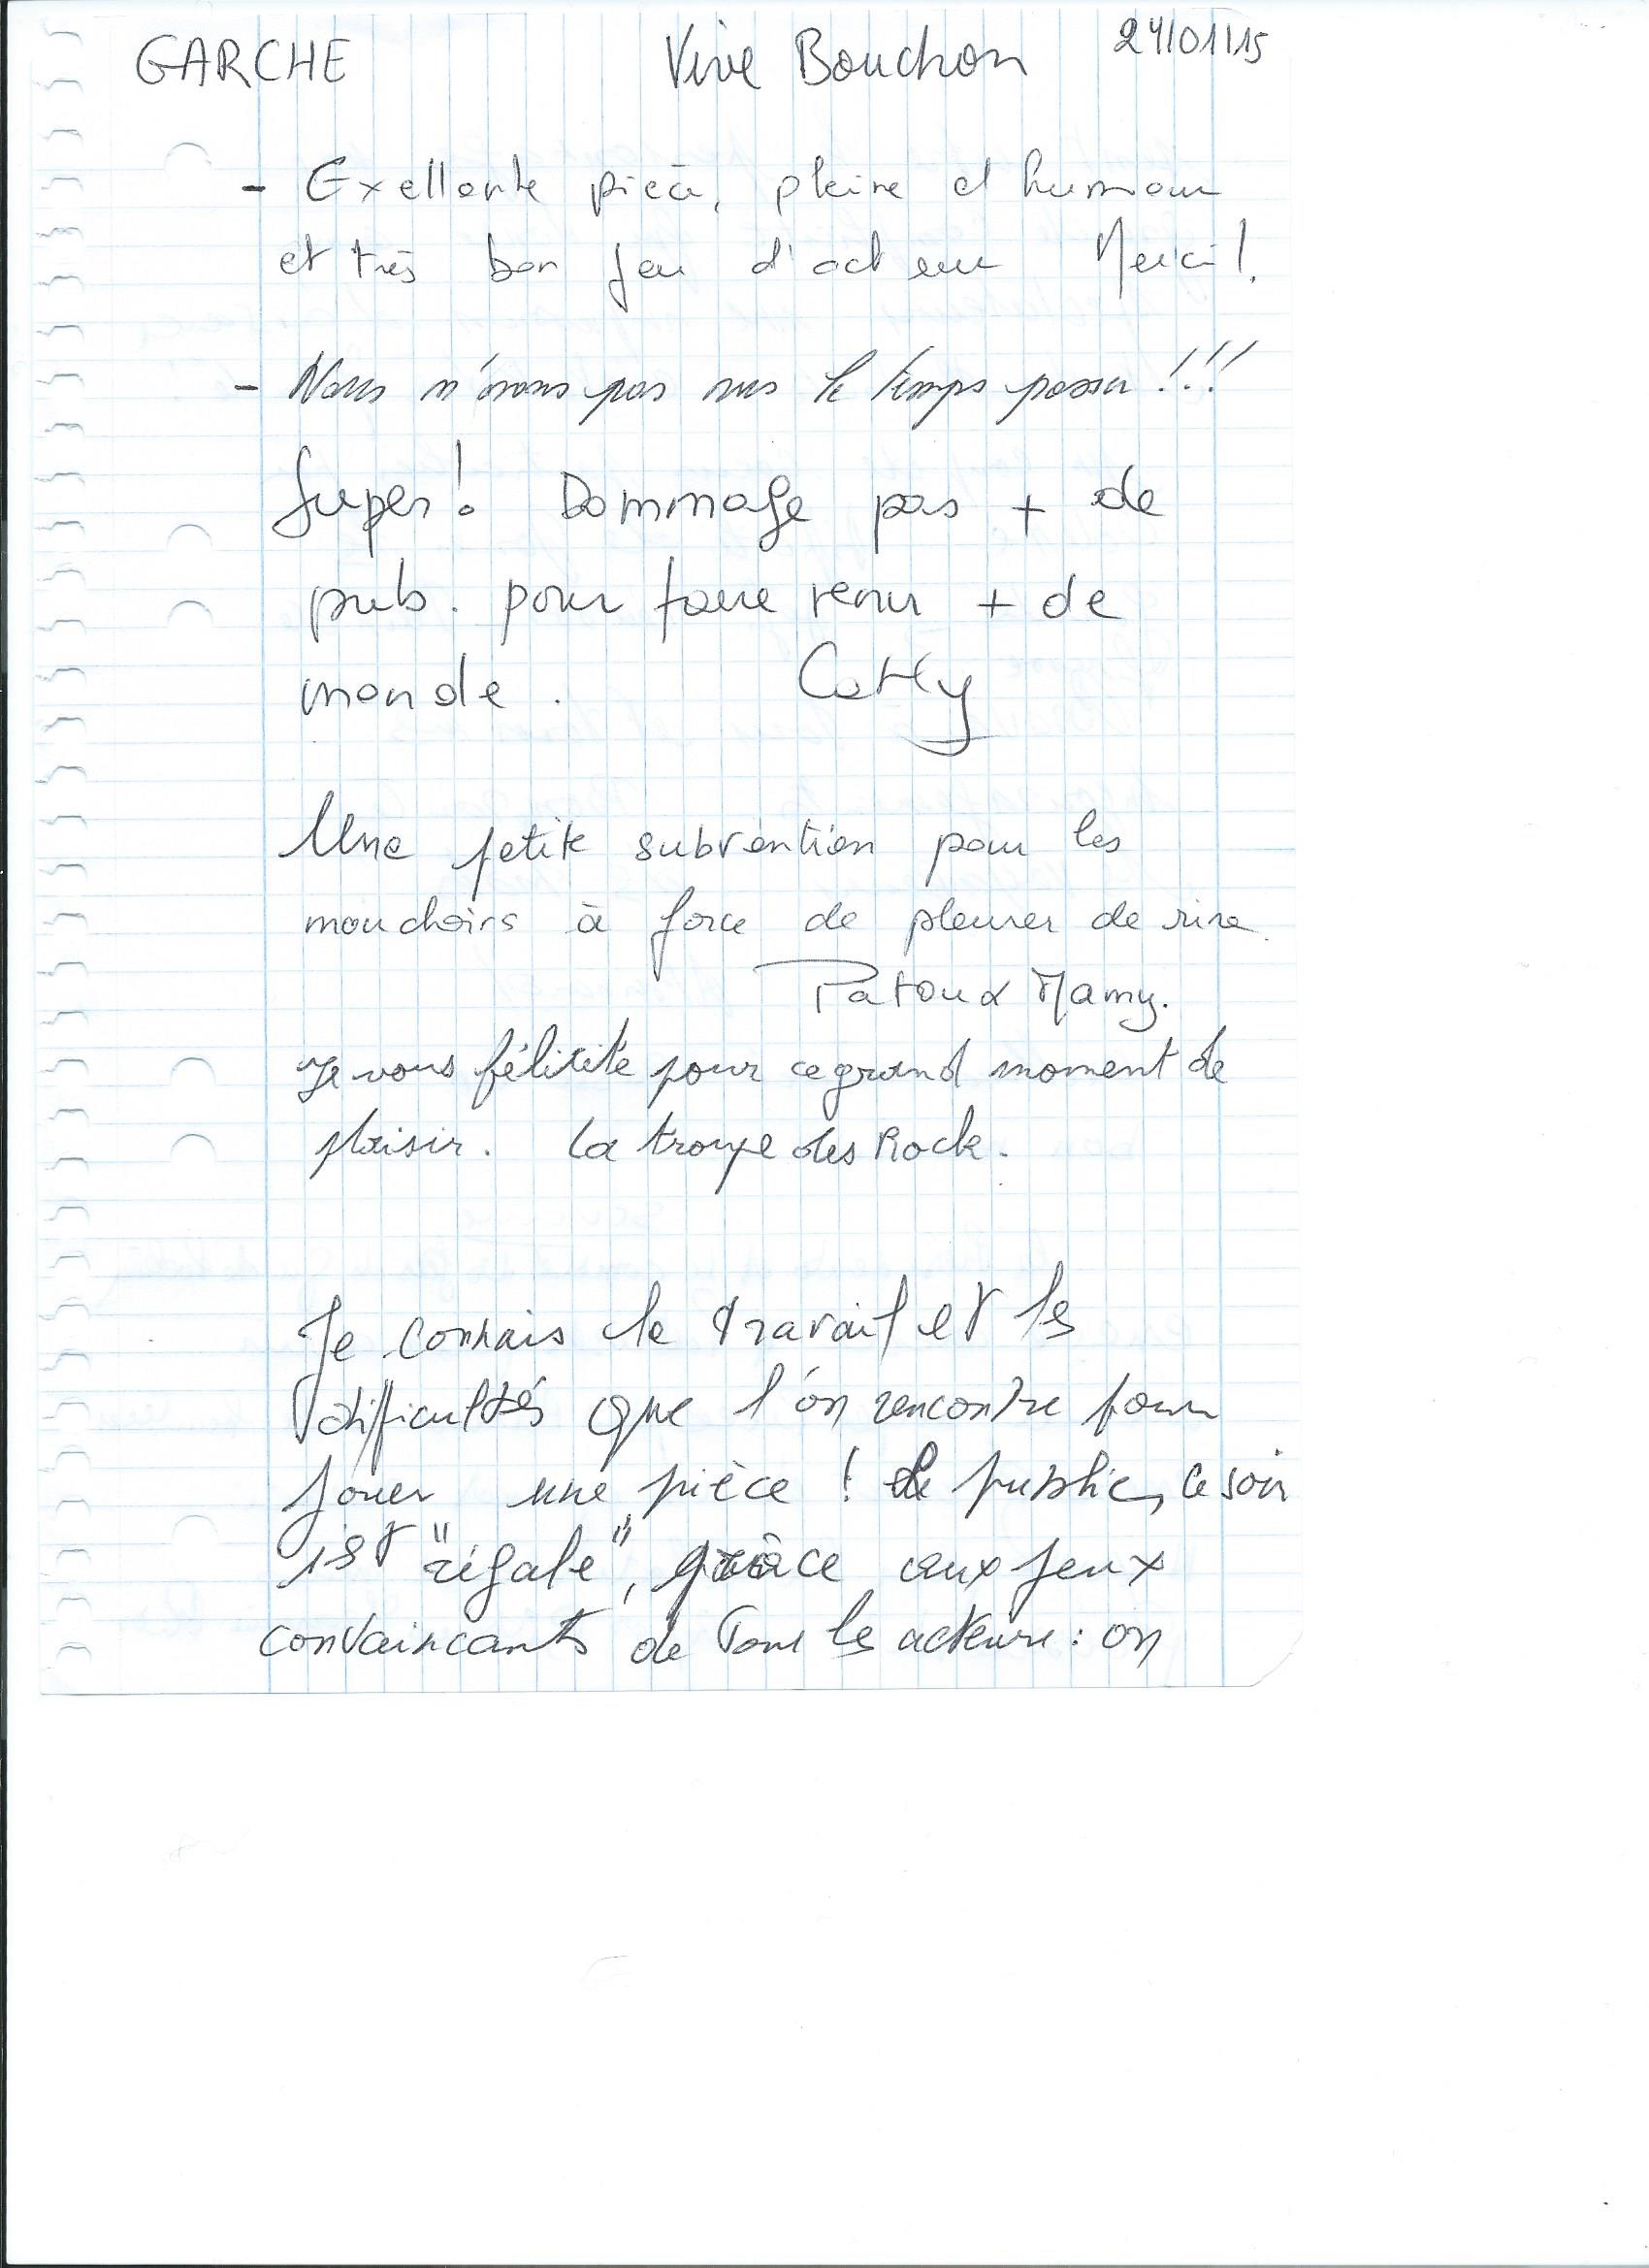 GARCHE Vive Bouchon 24/01/15
- Exellente pièce, pleine d'humour
et très bon jeu d'acteur Merci!
- Nous n'avons pas vus le temps passer !!!
Super! Dommage pas + de
pub. pour faire venir + de
monde. Cathy
Une petite subvention pour les
mouchoirs à force de pleurer de rire.
Patou & Mamy.
Je vous félicite pour ce grand moment de
plaisir. La troupe des Rock.
Je connais le travail et les
difficultés que l'on rencontre pour
jouer une pièce ! le public, ce soir
est "régalé", grâce aux jeux
convaincants de tous les acteurs : on